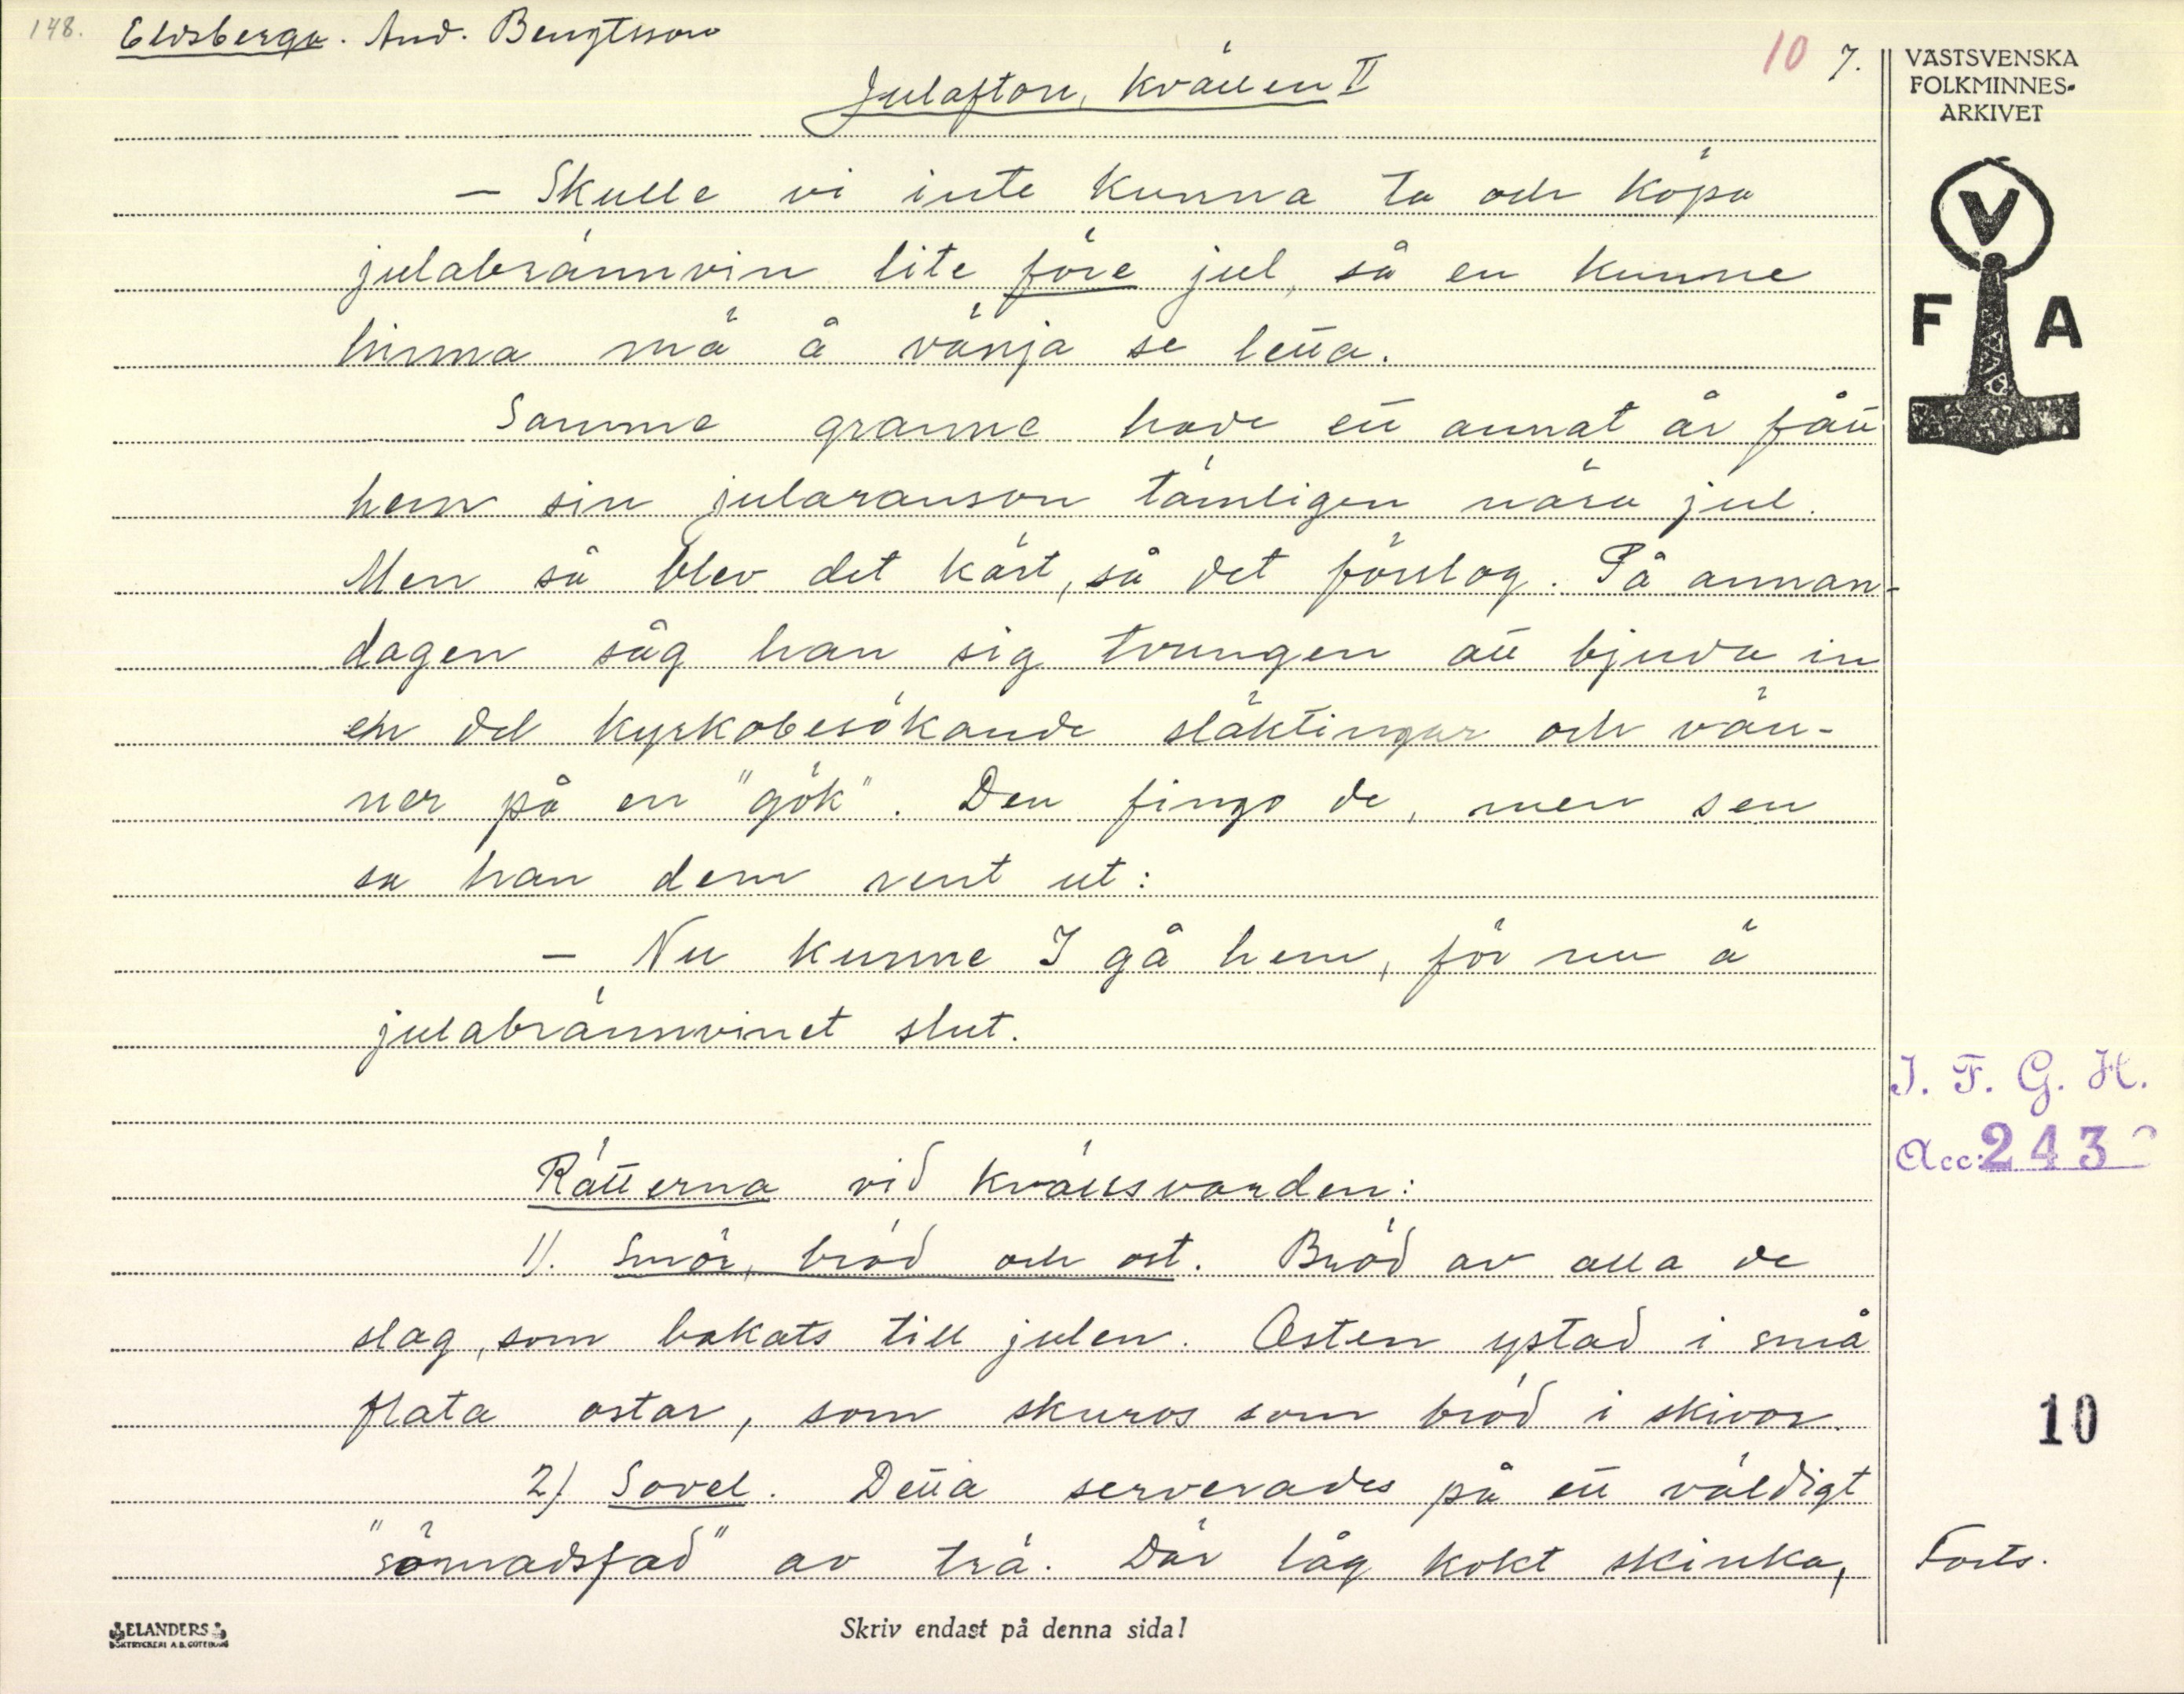 148. Elvsberga. And. Bengtsson
10 7.
Julafton, kvällen II
VÄSTSVENSKA
FOLKMINNES-
ARKIVET
V
F A
— Skulle vi inte kunna ta och köpa
julabrännvin lite före jul, så en kunne
hinna mä å vänja seletta.
Samme granne hade ett annat år fått
hem sin jularanson tämligen nära jul.
Men så blev det kärt, så det förslog. På annan-
dagen såg han sig tvungen att bjuda in
en del kyrkobesökande släktingar och vän-
ner på en "gök". Den fingo de, men sen
sa han dem rent ut:
— Nu kunne I gå hem, för nu ä
julabrännvinet slut.
Rätterna vid kvällsvarden:
1). Smör, bröd och ost. Bröd av alla de
slag, som bakats till julen. Osten ystad i små
flata ostar, som skuros som bröd i skivor.
2) Sovel. Detta serverades på ett väldigt
"sönnadsfad" av trä. Där låg kokt skinka,
I. F. G. H.
Acc: 243
10
Forts.
ELANDERS
BOKTRYCKERI A.B. GÖTEBORG
Skriv endast på denna sida!